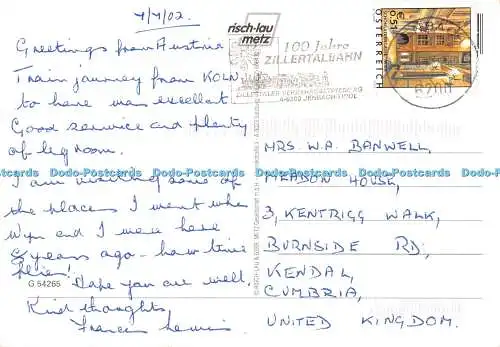 7/7/02.
Greetings from Austria
Train journey from KOLN
to here was excellent
Good service and plenty
of leg room.
I am visiting some of
the places I went when
and I were here
8 years ago - how time
flies!
Hope you are well.
Kind thoughts
Francis Lewis
G 54265
risch-lau
metz
100 Jahre
ZILLERTALBAHN
ZILLERTALER VERKEHRSBETRIEBE AG
A-6200 JENBACH TIROL
ÖSTERREICH
MRS. W.A. BANWELL,
MEADOW HOUSE,
3, KENTRIGG WALK,
BURNSIDE RD,
KENDAL,
CUMBRIA,
UNITED KINGDOM.
Dodo-Postcards Dodo-Postcards Dodo-Postcards Dodo-Postcards